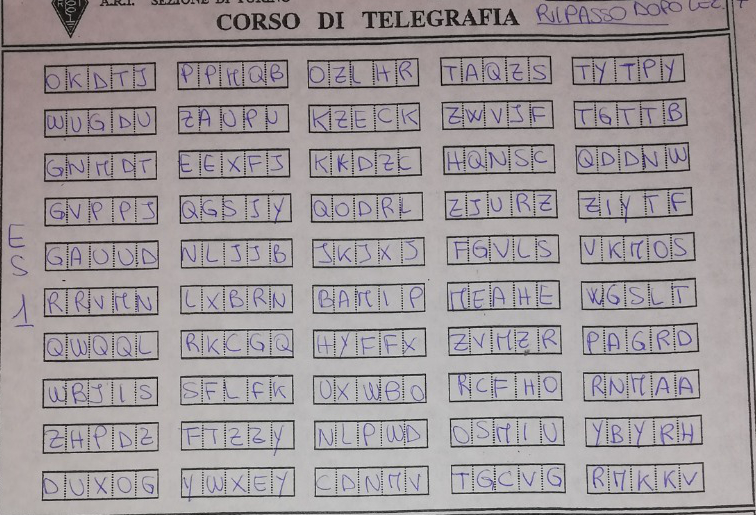 A.R.I. SEZIONE DI TORINO
CORSO DI TELEGRAFIA RIPASSO DOPO LEZ. 7
OKDTJ PPMQB OZLHR TAQZS TYTPY
WUGDU ZAUPU KZECK ZWVJF TGTTB
GNMDT EEXFJ KKDZC HQNSC QDDNW
GVPPJ QGSJY QODRL ZJURZ ZIYTF
GAUUD NLJJB JKJXJ FGVLS VKMOS
RRVMN LXBRN BAMIP MEAHE WGSLT
QWQQL RKCGQ HYFFX ZVMZR PAGRD
WBJIS SFLFK UXWBO RCFHO RNMAA
ZHPDZ FTZZY NLPWD OSMIU YBYRH
DUXOG YWXEY CDNMV TGCVG RMKKV
ES 1